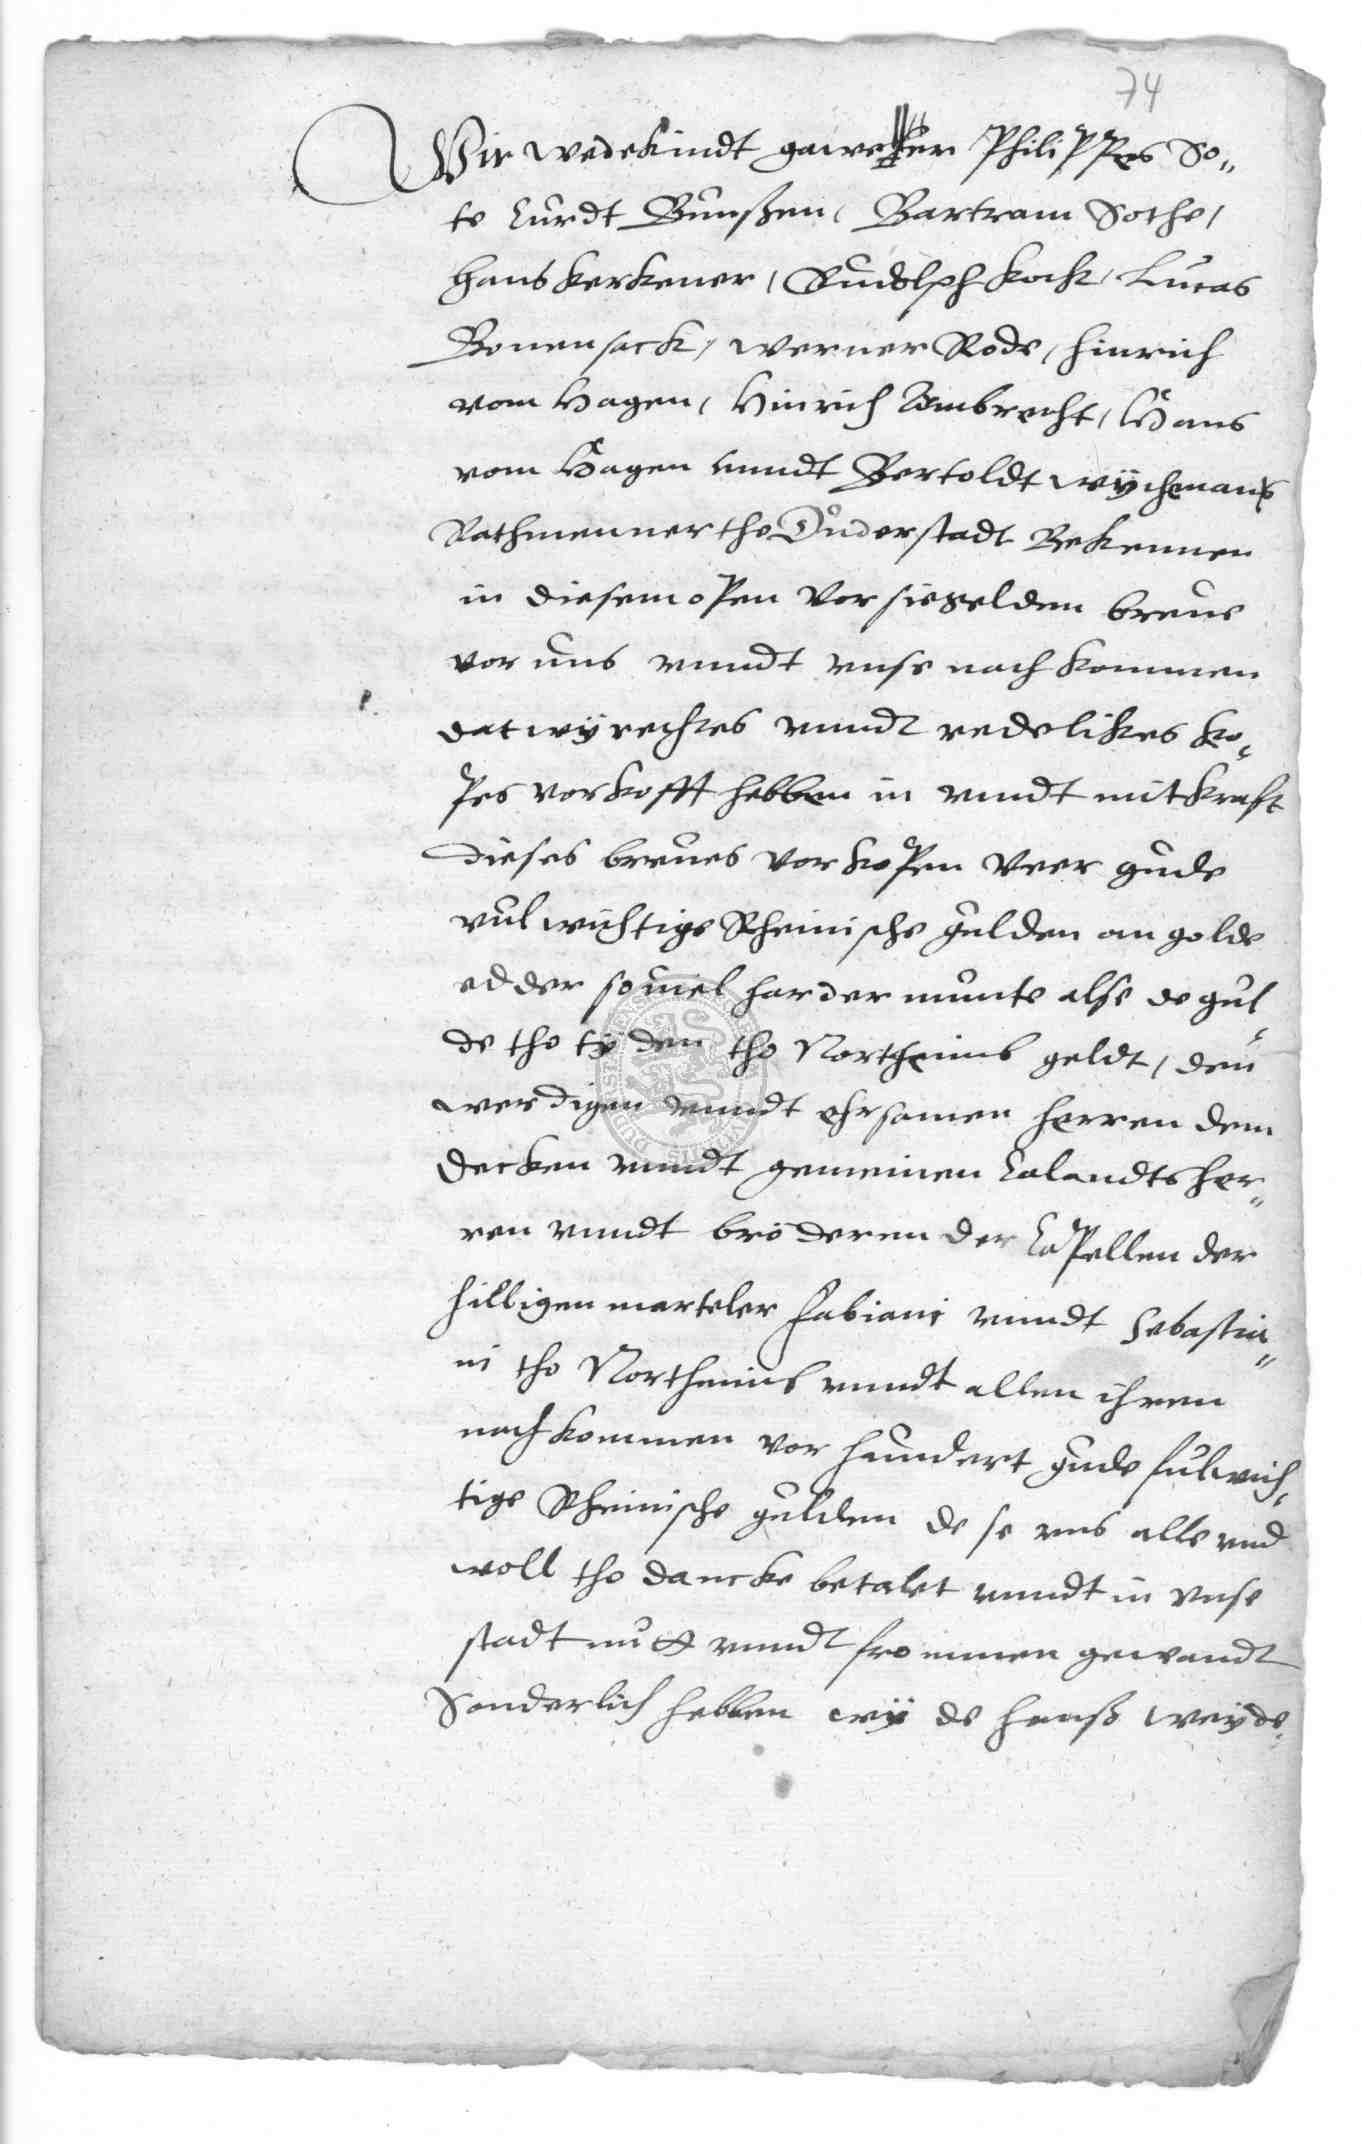 74
Wir wedekindt Philippes So„
te Curdt Bunßen, Bartram Sothe,
Hans Kerkener, Rudolph Kock, Lucas
Bonensack, Werner Rode, Hinrich
vom Hagen, Hinrich Ambrecht, Hans
vom Hagen unndt Bertoldt Wÿchmans
Rathmenner tho Duderstadt Bekennen
in diesem open vorsiegelden breue
vor uns unndt unse nachkommen
dat wÿ rechtes unndt redelikes ko„
pes vorkofft hebben in unndt mit krafft
dieses breues vorkopen veer gude
vulwichtige Rheinische gulden an golde
edder souiel harder munte alse de gul
de tho tÿden tho Northeimb geldt, den
werdigen unndt ehrsamen herren dem
decken unndt gemeinen Calandts her„
ren unndt bröderen der Capellen der
hilligen marteler Fabiani unndt Sebastia„
ni tho Northeimb unndt allen ihren
nachkommen vor hundert gude fulwich„
tige Rheinische gulden de se uns alle und
woll tho dancke betalet unndt in unse
stadt nutt unndt frommen gewandt
Sonderlich hebben wÿ de hanß weyde„